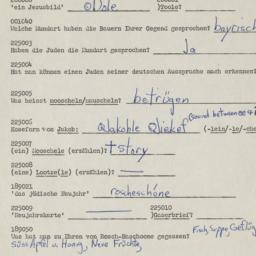 'ein Jesusbild' oDole )Tools!
001040
Welche Mundart haben die Bauern Ihrer Gegend gesprochen? bayrisch
225003
Haben die Juden die Mundart gesprochen? Ja
225004
Hat man können einen Juden seiner deutschen Aussprache nach erkennen?
225005
Was heisst mooscheln/muuscheln? betrügen
225006
Koseform von Jakob: (-lein/-le/-che
225007
(ein) Mooschele (erzählen): + story
225008
(eine) Lootze(le) (erzählen):
189021
'das jüdische Neujahr' roscheschóne
225009 225010
'Neujahrskarte' )Kaserbrief?
189050
Was hat man zu Ihnen von Rosch-Haschoone gegessen? Fisch, Suppe, Geflüg
süss Äpfel u. Honig, Neue Früchte